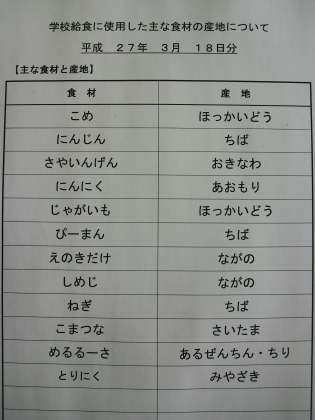 学校給食に使用した主な食材の産地について
平成　２７年　３月　１８日分
【主な食材と産地】
食　材　産　地
こめ　ほっかいどう
にんじん　ちば
さやいんげん　おきなわ
にんにく　あおもり
じゃがいも　ほっかいどう
ぴーまん　ちば
えのきだけ　ながの
しめじ　ながの
ねぎ　ちば
こまつな　さいたま
めるるーさ　あるぜんちん・ちり
とりにく　みやざき